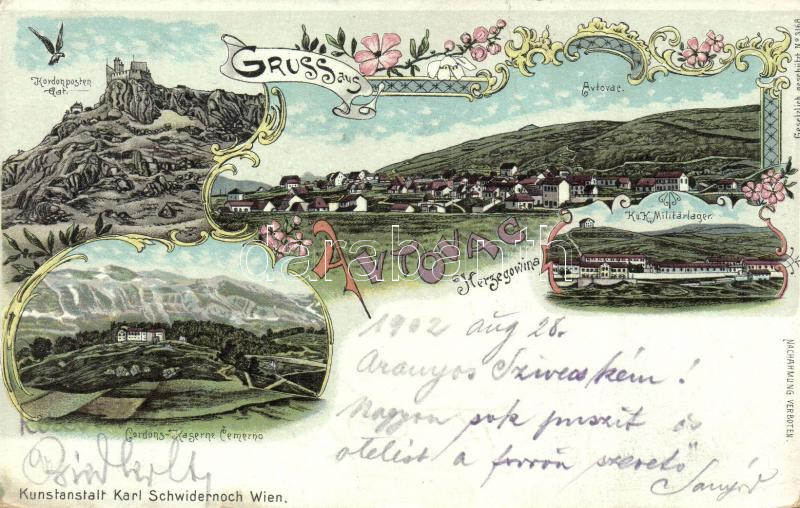 GRUSS aus
Kordonposten
Gat.
Avtovac.
Gesetzlich geschützt No 3148
K.u.K. Militärlager.
AVTOVAC
Herzegowina
darabanth.com
1902 aug 28.
Aranyos Szivecském!
Nagyon sok puszit és
ölelést a forrón szerető
Cordons-Kaserne Čemerno
NACHAHMUNG VERBOTEN.
Kunstanstalt Karl Schwidernoch Wien.